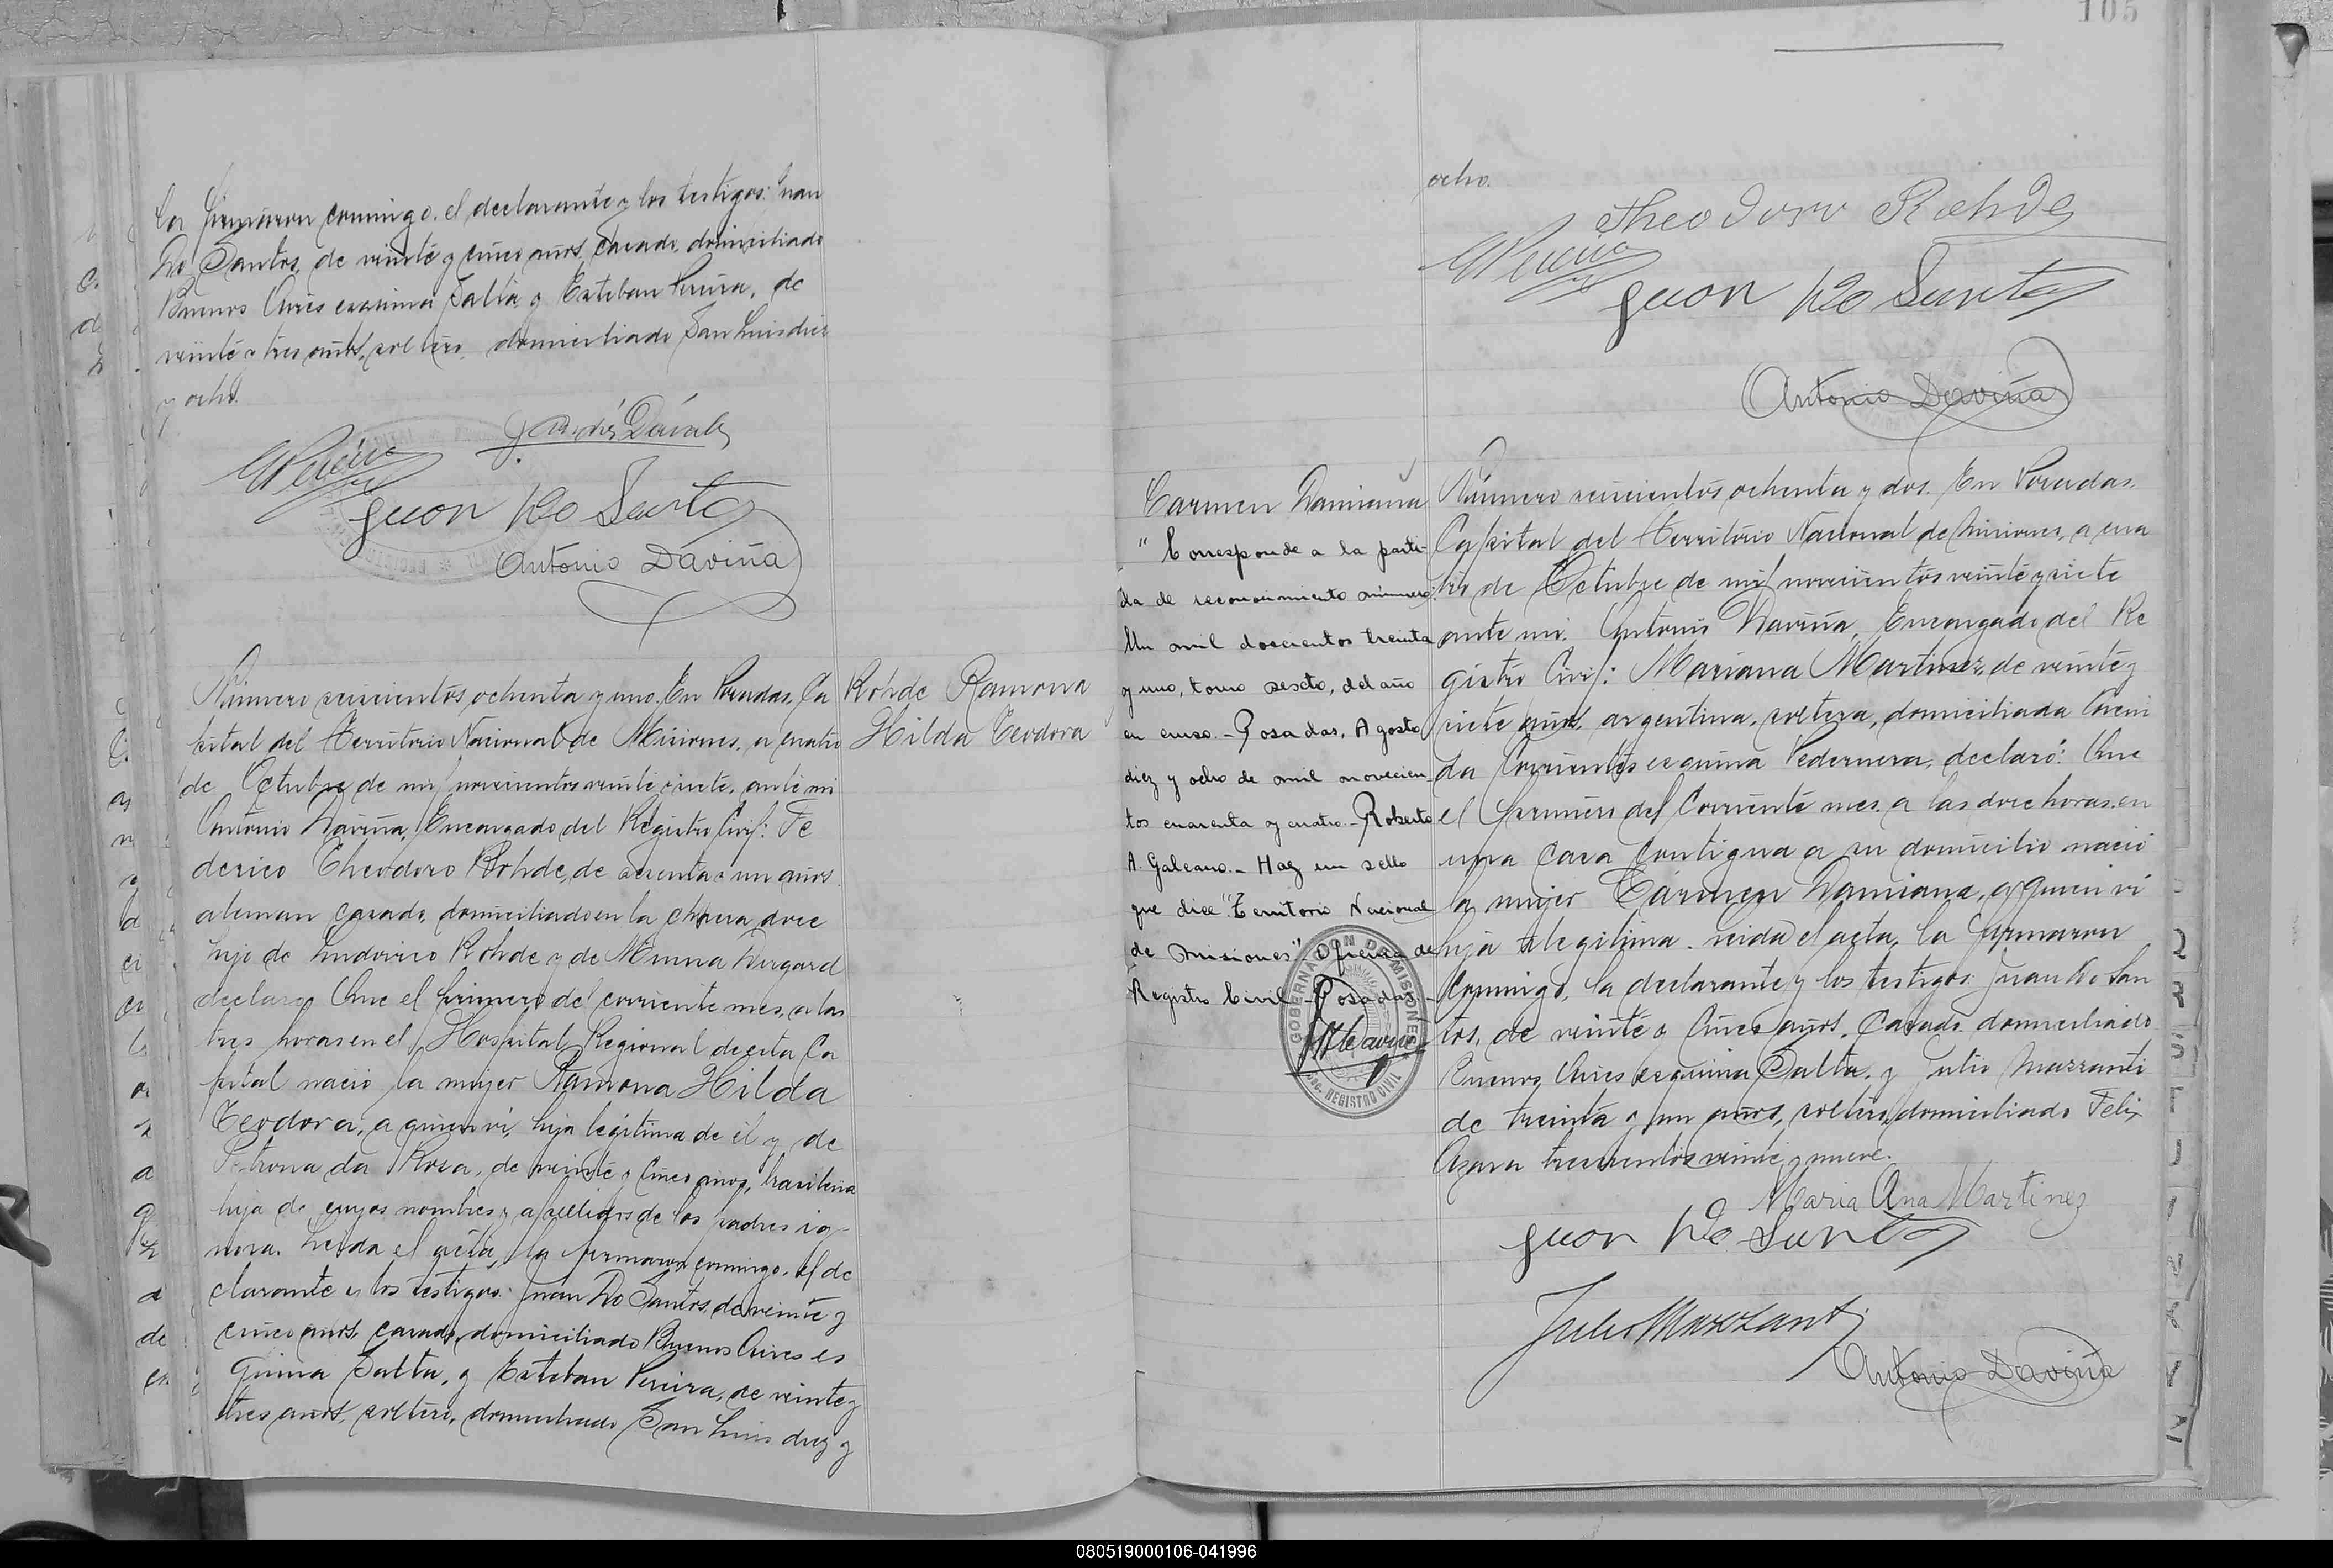 la firmaron conmigo, el declarante y los testigos: Juan
Do Santos, de veinte y cinco años, casado, domiciliado
Buenos Aires esquina Salta y Esteban Pereira, de
veinte y tres años, soltero, domiciliado San Luis diez
y ocho.
EPereira
Juan Do Santos
Antonio Daviña
Rohde Ramona
Hilda Teodora
Número seiscientos ochenta y uno. En Posadas, Ca
pital del Territorio Nacional de Misiones, a cuatro
de Octubre de mil novecientos veinte y siete, ante mi
Antonio Daviña, Encargado del Registro Civil: Fe
derico Theodoro Rohde, de sesenta y un años
aleman, casado, domiciliado en la chacra doce
hijo de Ludovico Rohde y de Minna
declaro: Que el primero del corriente mes, a las
tres horas en el Hospital Regional de esta Ca
pital nació la mujer Ramona Hilda
Teodora, a quien vi, hija legítima de él y de
Petrona da Rosa, de veinte y cinco años, brasilera
hija de cuyos nombres y apellidos de los padres ig-
nora. Leida el acta, la firmaron conmigo, el de
clarante y los testigos: Juan Do Santos, de veinte y
cinco años, casado, domiciliado Buenos Aires es
quina Salta, y Esteban Pereira, de veinte y
tres años, soltero, domiciliado San Luis diez y
105
ocho.
Theodoro Rohde
EPereira
Juan Do Santos
Antonio Daviña
Carmen Damiana
"Corresponde a la parti-
da de reconocimiento número
Un mil doscientos treinta
y uno, tomo sexto, del año
en curso.- Posadas, Agosto
diez y ocho de mil novecien-
tos cuarenta y cuatro.- Roberto
A. Galeano.- Hay un sello
que dice "Territorio Nacional
de Misiones" Oficina de
Registro Civil - Posadas.-
GOBERNACION DE MISIONES
REGISTRO CIVIL
Número seiscientos ochenta y dos. En Posadas,
Capital del Territorio Nacional de Misiones, a cua
tro de Octubre de mil novecientos veinte y siete
ante mi. Antonio Daviña, Encargado del Re
gistro Civil: Mariana Martinez, de veinte y
siete años, argentina, soltera, domiciliada Aveni
da Corrientes esquina Pedernera, declaró: Que
el primero del corriente mes, a las doce horas, en
una casa contigua a su domicilio nació
la mujer Cármen Damiana, a quien vi
hija ilegitima. Leida el acta, la firmaron
conmigo, la declarante y los testigos: Juan Do San
tos, de veinte y cinco años, casado, domiciliado
Buenos Aires esquina Salta, y Julio Marzanti
de treinta y un años, soltero, domiciliado Felix
Azara trescientos veinte y nueve.
Maria Ana Martinez
Juan Do Santos
Julio Marzanti
Antonio Daviña
080519000106-041996